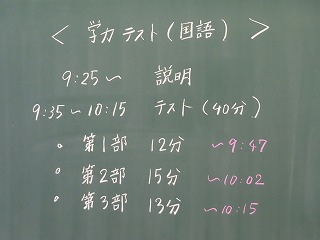 < 学力テスト(国語) >
9:25〜 説明
9:35〜10:15 テスト(40分)
。第1部 12分 〜9:47
。第2部 15分 〜10:02
。第3部 13分 〜10:15